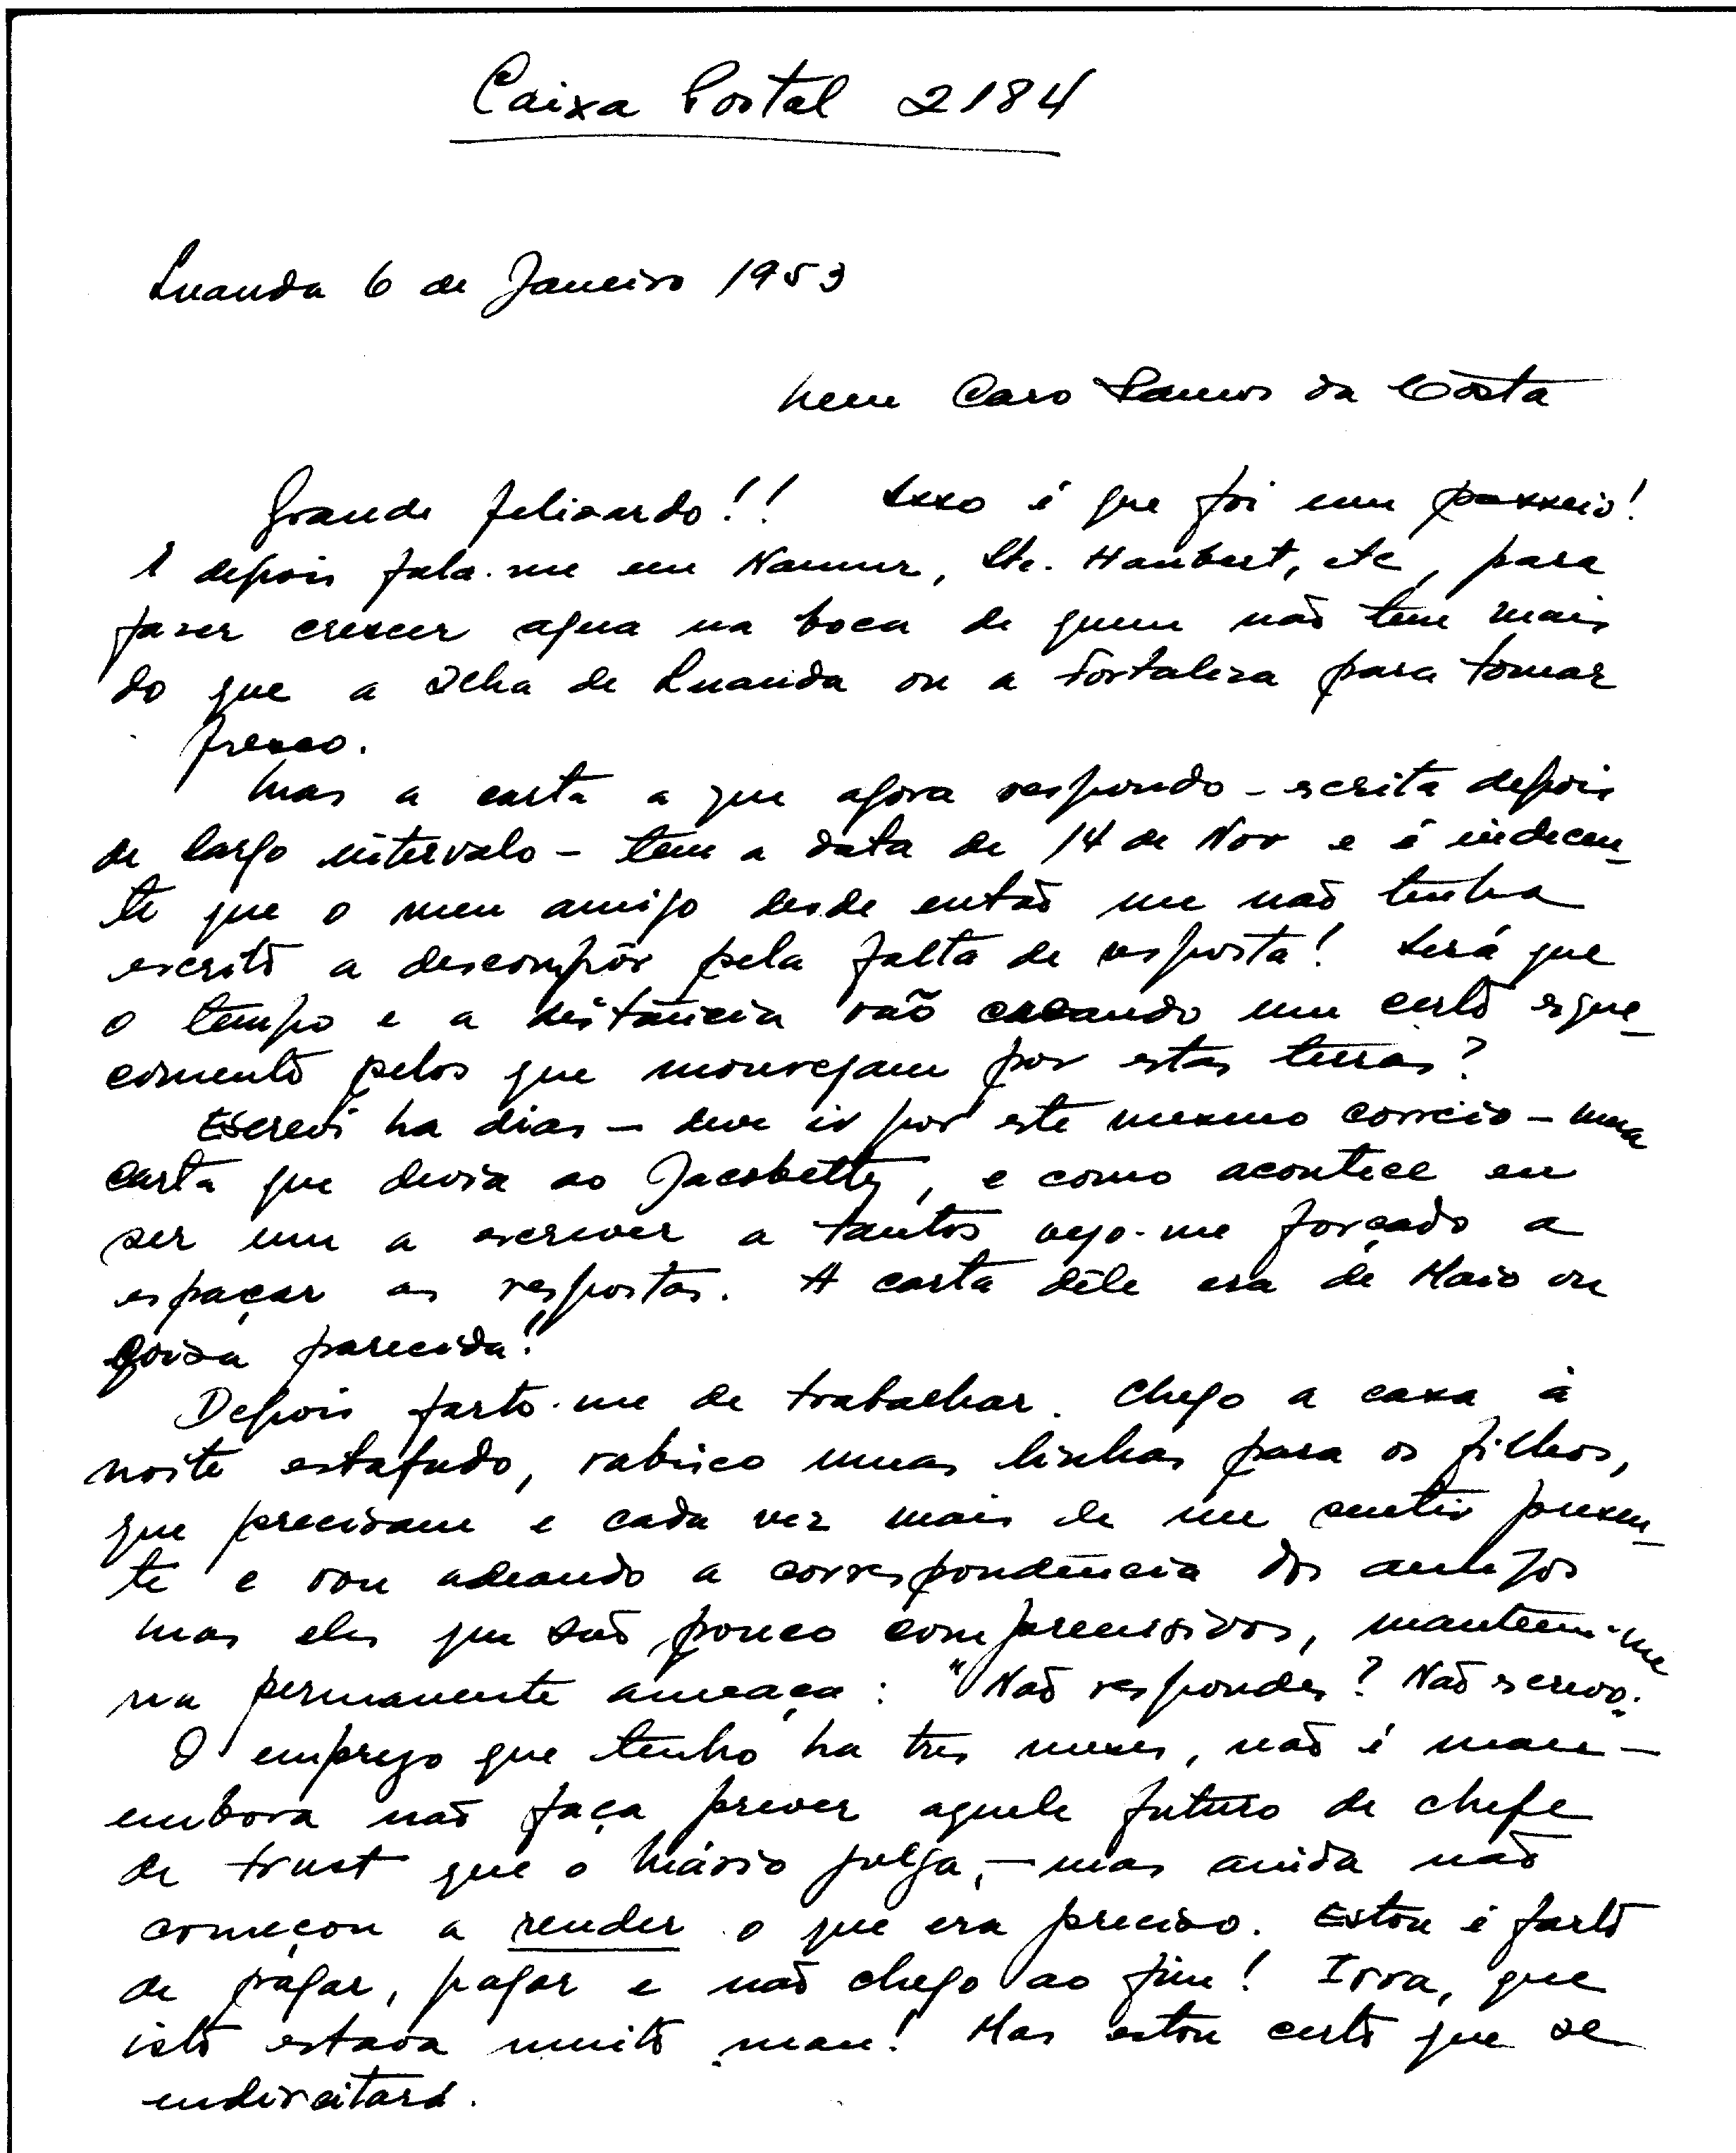 Caixa Postal 2184
Luanda 6 de Janeiro 1953
Meu Caro Ramos da Costa
Grande felizardo!! Isso é que foi um passeio!
E depois fala-me em Namur, Ste. Haubert, etc, para
fazer crescer agua na boca de quem não tem mais
do que a Ilha de Luanda ou a Fortaleza para tomar
fresco.
Mas a carta a que agora respondo - escrita depois
de largo intervalo - tem a data de 14 de Nov e é indecen-
te que o meu amigo desde então me não tenha
escrito a descompôr pela falta de resposta! Será que
o tempo e a distância vão creando um certo esque-
cimento pelos que mourejam por estas terras?
Escrevi ha dias - deve ir por este mesmo correio - uma
carta que devia ao Jacobetty, e como acontece eu
ser um a escrever a tantos vejo-me forçado a
espaçar as respostas. A carta dêle era de Maio ou
coisa parecida!
Depois farto-me de trabalhar. Chego a casa à
noite estafado, rabisco umas linhas para os filhos,
que precisam e cada vez mais de me sentir presen-
te e vou adeando a correspondência dos amigos
mas eles que são pouco compreensivos, manteem-me
na permanente ameaça: "Não respondes? Não screvo."
O emprego que tenho ha tres meses, não é mau -
embora não faça prever aquele futuro de chefe
de trust que o Mário julga, - mas ainda não
começou a render o que era preciso. Estou é farto
de pagar, pagar e não chego ao fim! Irra, que
isto estava muito mau! Mas estou certo que se
endireitará.